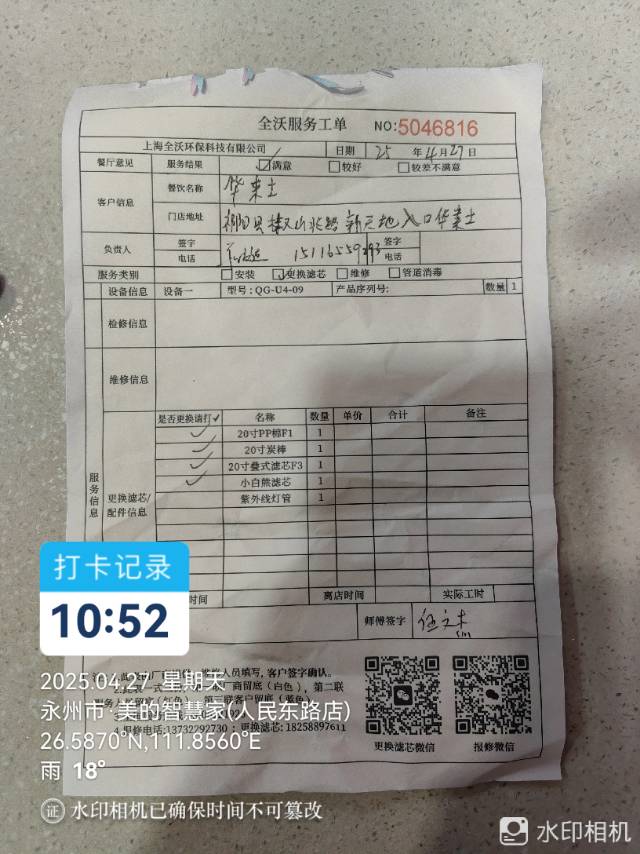 全沃服务工单 NO:5046816
上海全沃环保科技有限公司 日期 25 年 4 月 27 日
餐厅意见 服务结果 ☑满意 □较好 □较差不满意
客户信息 餐饮名称 华莱士
门店地址 祁阳县 山北路新天地入口华莱士
负责人 签字 签字
电话 15116559 电话
服务类别 □安装 ☑更换滤芯 □维修 □管道消毒
设备信息 设备一 型号:QG-U4-09 产品序列号: 数量 1
检修信息
维修信息
服务信息
更换滤芯/配件信息
是否更换请打✓ 名称 数量 单价 合计 备注
✓ 20寸PP棉F1 1
✓ 20寸炭棒 1
✓ 20寸叠式滤芯F3 1
✓ 小白熊滤芯 1
紫外线灯管 1
时间 离店时间 实际工时
师傅签字
人员填写,客户签字确认。
商留底(白色),第二联
第三联客户留底(蓝色)
4.报修电话:13732292730 ; 更换滤芯: 18258897611
更换滤芯微信 报修微信
打卡记录
10:52
2025.04.27 星期天
永州市·美的智慧家(人民东路店)
26.5870°N,111.8560°E
雨 18°
证 水印相机已确保时间不可篡改
水印相机